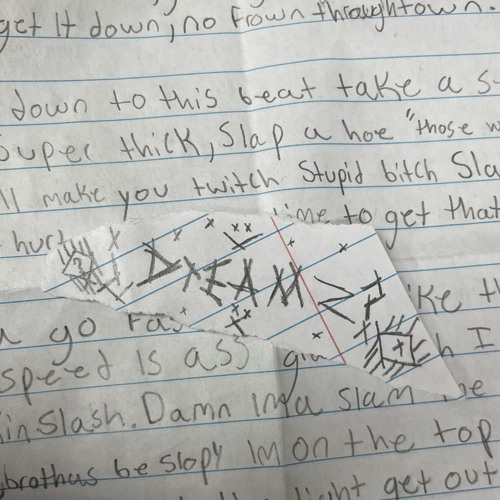 get it down, no frown through town.
down to this beat take a s
super thick, slap a hoe "those w
ll make you twitch Stupid bitch Sla
ime to get that
hurt
DREAM
ike th
go ras
h I
speed is ass
in slash. Damn Ima slam me
brothas be slopy Im on the top
light get out